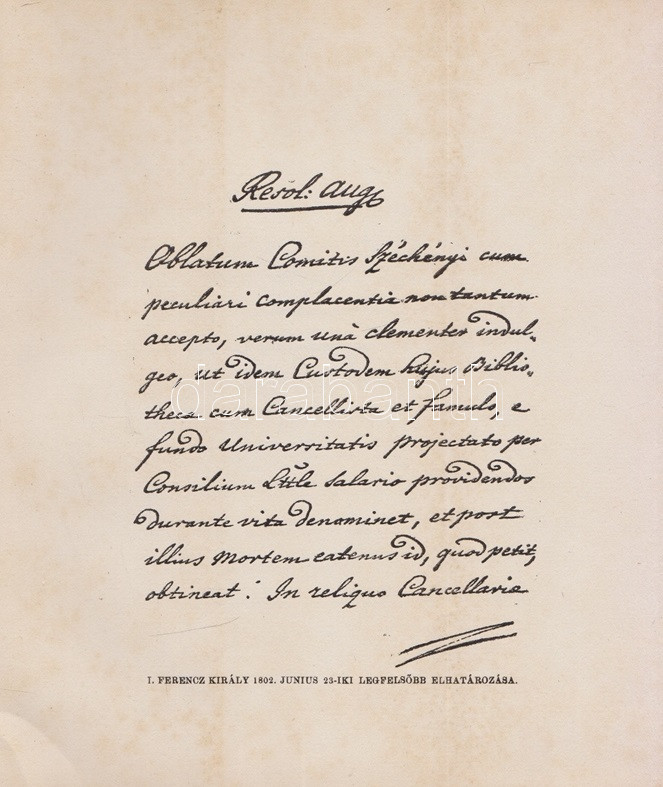 Resol: Aug
Oblatum Comitis Széchényi cum
peculiari complacentia non tantum
accepto, verum unà clementer indul=
geo, ut idem Custodem hujus Biblio=
thecæ cum Cancellista et famulo, e
fundo Universitatis projectato per
Consilium Lttle salario providendos
durante vita denominet, et post
illius mortem eatenus id, quod petit,
obtineat. In reliquo Cancellariæ
I. FERENCZ KIRÁLY 1802. JUNIUS 23-IKI LEGFELSŐBB ELHATÁROZÁSA.
darabanth